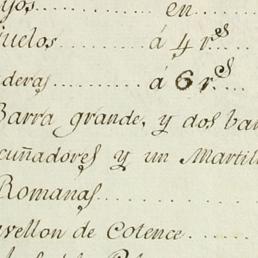 jos ........ en
uelos ......... á 4 r.s
deras ......... á 6 r.s
Barra grande, y dos bar
cuñadores y un Martill
Romanas ........
avellon de Cotence ....